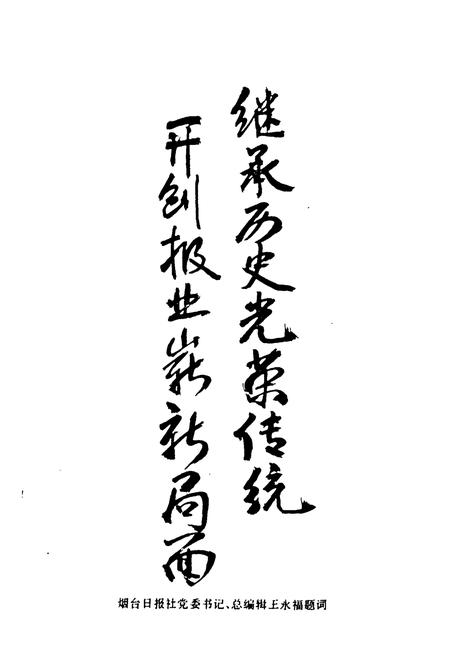 继承历史光荣传统
开创报业崭新局面
烟台日报社党委书记、总编辑王永福题词